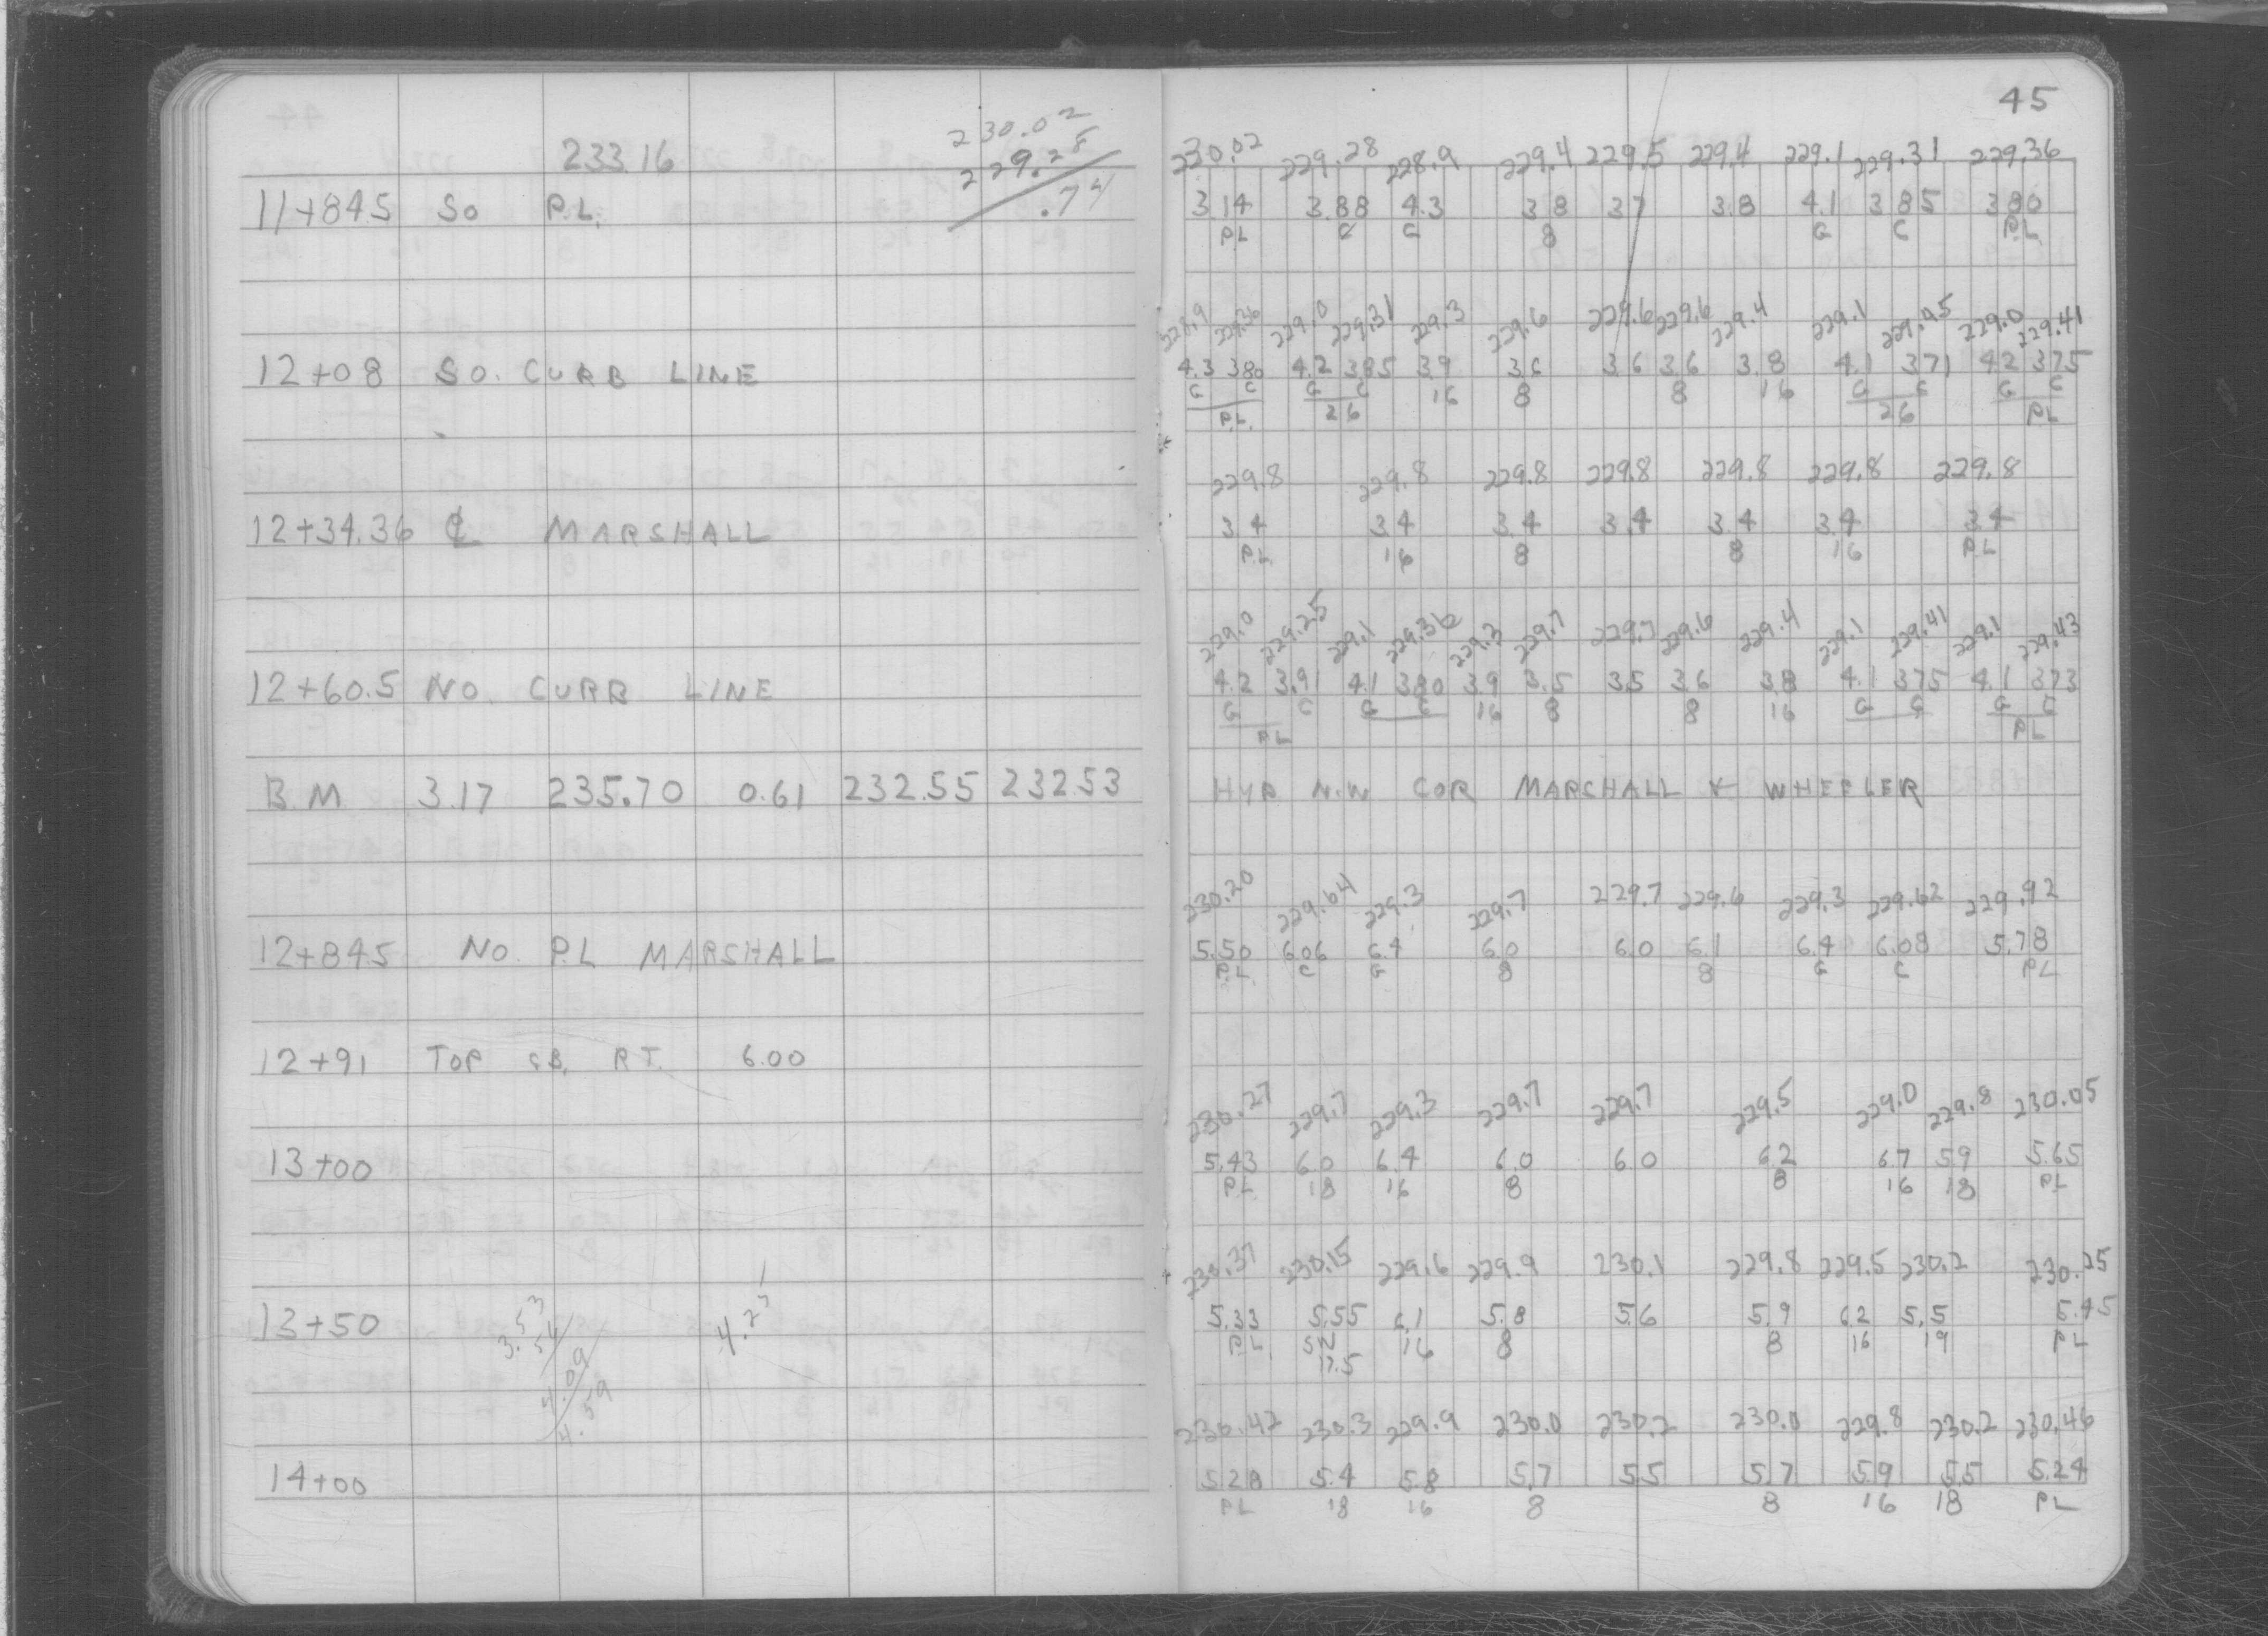 45
233.16
230.02
229.28
.74
11+84.5 So P.L.
230.02 229.28 228.9 229.4 229.5 229.4 229.1 229.31 229.36
3.14 3.88 4.3 3.8 3.7 3.8 4.1 3.85 3.80
PL C G 8 G C P.L.
228.9 229.36 229.0 229.31 229.3 229.6 229.6 229.6 229.4 229.1 229.45 229.0 229.41
12+08 SO. CURB LINE
4.3 3.80 4.2 3.85 3.9 3.6 3.6 3.6 3.8 4.1 3.71 4.2 3.75
G C G C 16 8 8 16 G C G C
P.L. 26 26 P.L
229.8 229.8 229.8 229.8 229.8 229.8 229.8
12+34.36 ℄ MARSHALL
3.4 3.4 3.4 3.4 3.4 3.4 3.4
P.L. 16 8 8 16 P.L
229.0 229.25 229.1 229.36 229.3 229.7 229.7 229.6 229.4 229.1 229.41 229.1 229.43
12+60.5 NO. CURB LINE
4.2 3.91 4.1 3.80 3.9 3.5 3.5 3.6 3.8 4.1 3.75 4.1 3.73
G C G C 16 8 8 16 G C G C
PL PL
B.M 3.17 235.70 0.61 232.55 232.53
HYD N.W COR MARSHALL & WHEELER
230.20 229.64 229.3 229.7 229.7 229.6 229.3 229.62 229.92
12+84.5 NO. P.L MARSHALL
5.50 6.06 6.4 6.0 6.0 6.1 6.4 6.08 5.78
P.L. C G 8 8 G C PL
12+91 TOP CB. RT. 6.00
230.27 229.7 229.3 229.7 229.7 229.5 229.0 229.8 230.05
13+00
5.43 6.0 6.4 6.0 6.0 6.2 6.7 5.9 5.65
P.L 18 16 8 8 16 18 PL
230.37 230.15 229.6 229.9 230.1 229.8 229.5 230.2 230.25
13+50
3.53
.54
4.09
4.59
4.27
5.33 5.55 6.1 5.8 5.6 5.9 6.2 5.5 5.45
P.L. SW 16 8 8 16 19 PL
17.5
230.42 230.3 229.9 230.0 230.2 230.0 229.8 230.2 230.46
14+00
5.28 5.4 5.8 5.7 5.5 5.7 5.9 5.5 5.24
PL 18 16 8 8 16 18 PL